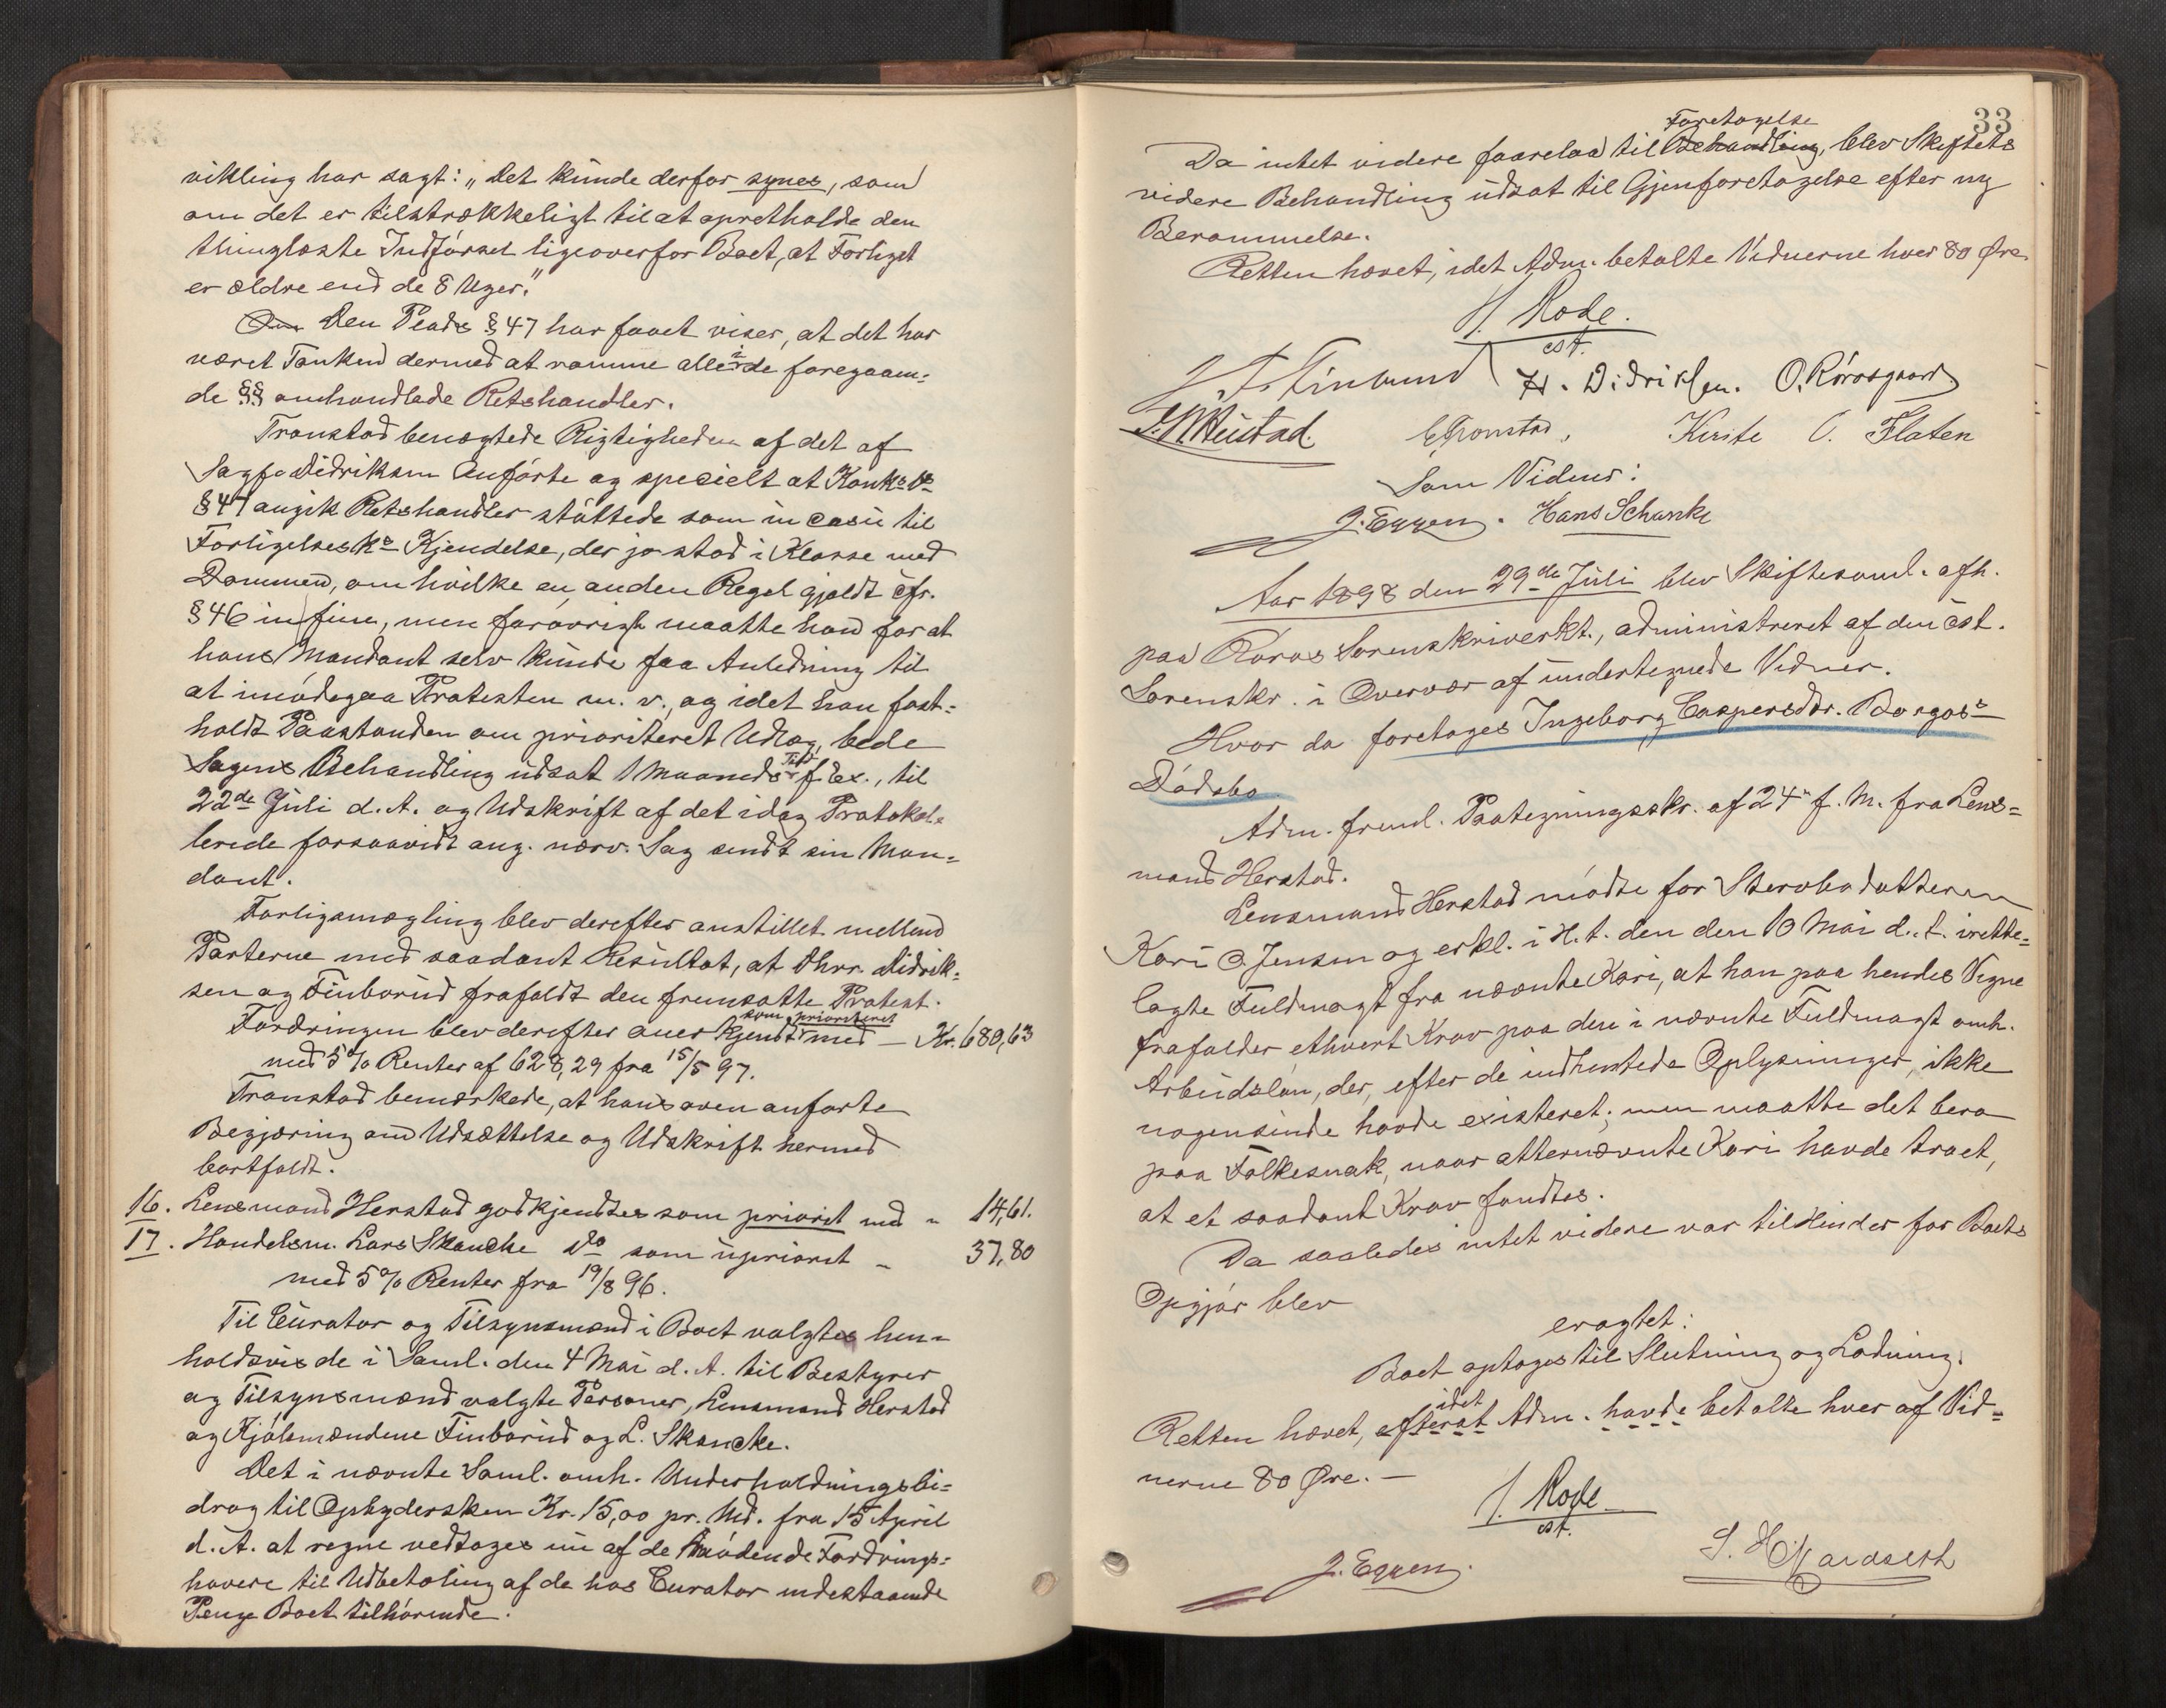 vikling har sagt: „Det kunde derfor synes, som
om det er tilstrækkeligt til at opretholde den
thinglæste Indførsel ligeoverfor Boet, at Forliget
er ældre end de 8 Uger."
Den Plads § 47 har faaet viser, at det har
været Tanken dermed at ramme alle i de foregaaen=
de §§ omhandlede Retshandler.
Tronstad benægtede Rigtigheden af det af
Sagf. Didriksen Anførte og specielt at Konks.
§ 47 angik Retshandler støttede som in casu til
Forligelsesks Kjendelse, der jo stod i Klasse med
Dommen, om hvilke en anden Regel gjaldt cfr.
§ 46 in fine, men forøvrigt maatte han for at
hans Mandant selv kunde faa Anledning til
at imødegaa Protesten m. v., og idet han fast=
holdt Paastanden om prioriteret Udlæg, bede
Sagens Behandling udsat 1 Maaneds Tid f. Ex., til
22de Juli d. A. og Udskrift af det idag Protokol=
lerede forsaavidt ang. nærv. Sag sendt sin Man=
dant.
Forligsmægling blev derefter anstillet mellem
Parterne med saadant Resultat, at Dhrr. Didrik=
sen og Finborud frafaldt den fremsatte Protest.
Fordringen blev derefter anerkjendt som prioriteret med — Kr. 680,63
med 5 % Renter af 628,29 fra 15/5 97.
Tronstad bemærkede, at hans oven anførte
Begjæring om Udsættelse og Udskrift hermed
bortfaldt.
16. Lensmand Herstad godkjendtes som prioriet med " 14,61.
17. Handelsm. Lars Skancke do som uprioriet " 37,80
med 5 % Renter fra 19/8 96.
Til Curator og Tilsynsmænd i Boet valgtes hen=
holdsvis de i Saml. den 4 Mai d. A. til Bestyrer
og Tilsynsmænd valgte Personer, Lensmand Herstad
og Kjøbmændene Finborud og L. Skancke.
Det i nævnte Saml. omh. Underholdningsbi=
drag til Opbydersken Kr. 15,00 pr. Md. fra 15 April
d. A. at regne vedtages nu af de mødende Fordrings=
havere til Udbetaling af de hos Curator indestaaende
Penge Boet tilhørende.
33
Da intet videre forelaa til Behandling Foretagelse, blev Skiftets
videre Behandling udsat til Gjenforetagelse efter ny
Berammelse.
Retten hævet, idet Adm. betalte Vidnerne hver 80 Øre.
J. Rode.
cst.
Finborud H. Didriksen. O. Rörosgaard
Mustad. Tronstad, Kirste O. Flaten
Som Vidner:
J. Eggen. Hans Schanke
Aar 1898 den 29de Juli blev Skiftesaml. afh.
paa Røros Sorenskriverkt., administreret af den cst.
Sorenskr. i Overvær af undertegnede Vidner.
Hvor da foretages Ingeborg Caspersdtr. Borgos's
Dødsbo.
Adm. freml. Paategningsskr. af 24" f. M. fra Lens=
mand Herstad.
Lensmand Herstad mødte for Stervbodatteren
Kari O. Jensen og erkl. i H. t. den den 10 Mai d. A. irette=
lagte Fuldmagt fra nævnte Kari, at han paa hendes Vegne
frafalder ethvert Krav paa den i nævnte Fuldmagt omh.
Arbeidsløn, der, efter de indhentede Oplysninger, ikke
nogensinde havde existeret; men maatte det bero
paa Folkesnak, naar atternævnte Kari havde troet,
at et saadant Krav fandtes.
Da saaledes intet videre var til Hinder for Boets
Opgjør blev
eragtet:
Boet optages til Slutning og Lodning.
Retten hævet, efterat idet Adm. havde betalte hver af Vid=
nerne 80 Øre. —
J. Rode
cst.
J. Eggen.